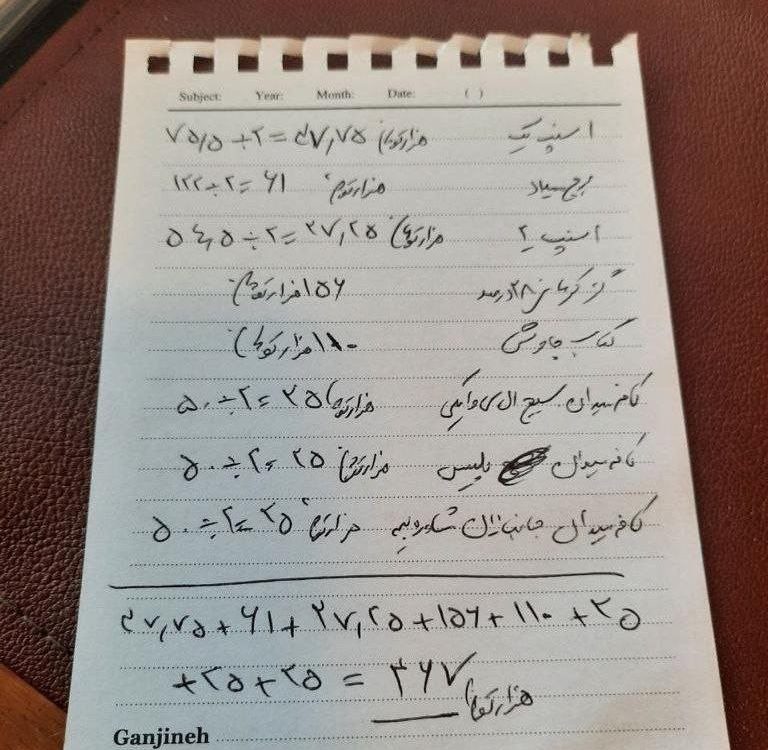 Subject: Year: Month: Date: ( )
اسنپ یک ۷۵,۵ ÷ ۲ = ۳۷,۷۵ هزارتومان
برج میلاد ۱۲۲ ÷ ۲ = ۶۱ هزارتومان
اسنپ ۲ ۵۴,۵ ÷ ۲ = ۲۷,۲۵ هزارتومان
گز ۲۸ درصد ۱۵۶ هزارتومان
کتاب چاوشی ۱۱۰ هزارتومان
کافه میدان بسیج ال سی ۵۰ ÷ ۲ = ۲۵ هزارتومان
کافه میدان پلیس ۵۰ ÷ ۲ = ۲۵ هزارتومان
کافه میدان جانبازان ۵۰ ÷ ۲ = ۲۵ هزارتومان
۳۷,۷۵ + ۶۱ + ۲۷,۲۵ + ۱۵۶ + ۱۱۰ + ۲۵
+ ۲۵ + ۲۵ = ۴۶۷ هزارتومان
Ganjineh